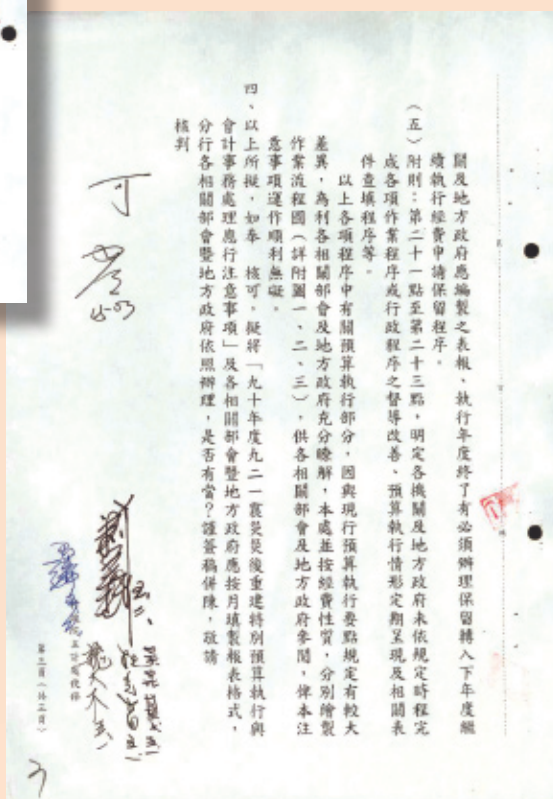 關及地方政府應編製之表報、執行年度終了有必須辦理保留轉入下年度繼
續執行經費申請保留程序。
(五)附則：第二十一點至第二十三點，明定各機關及地方政府未依規定時程完
成各項作業程序或行政程序之督導改善、預算執行情形定期呈現及相關表
件查填程序等。
以上各項程序中有關預算執行部分，因與現行預算執行要點規定有較大
差異，為利各相關部會及地方政府充分瞭解，本處並按經費性質，分別繪製
作業流程圖(詳附圖一、二、三)，供各相關部會及地方政府參閱，俾本注
意事項運作順利無礙。
四、以上所擬，如奉　核可，擬將「九十年度九二一震災災後重建特別預算執行與
會計事務處理應行注意事項」及各相關部會暨地方政府應按月填製報表格式，
分行各相關部會暨地方政府依照辦理，是否有當？謹簽稿併陳，敬請
核判
可
第三頁(共三頁)